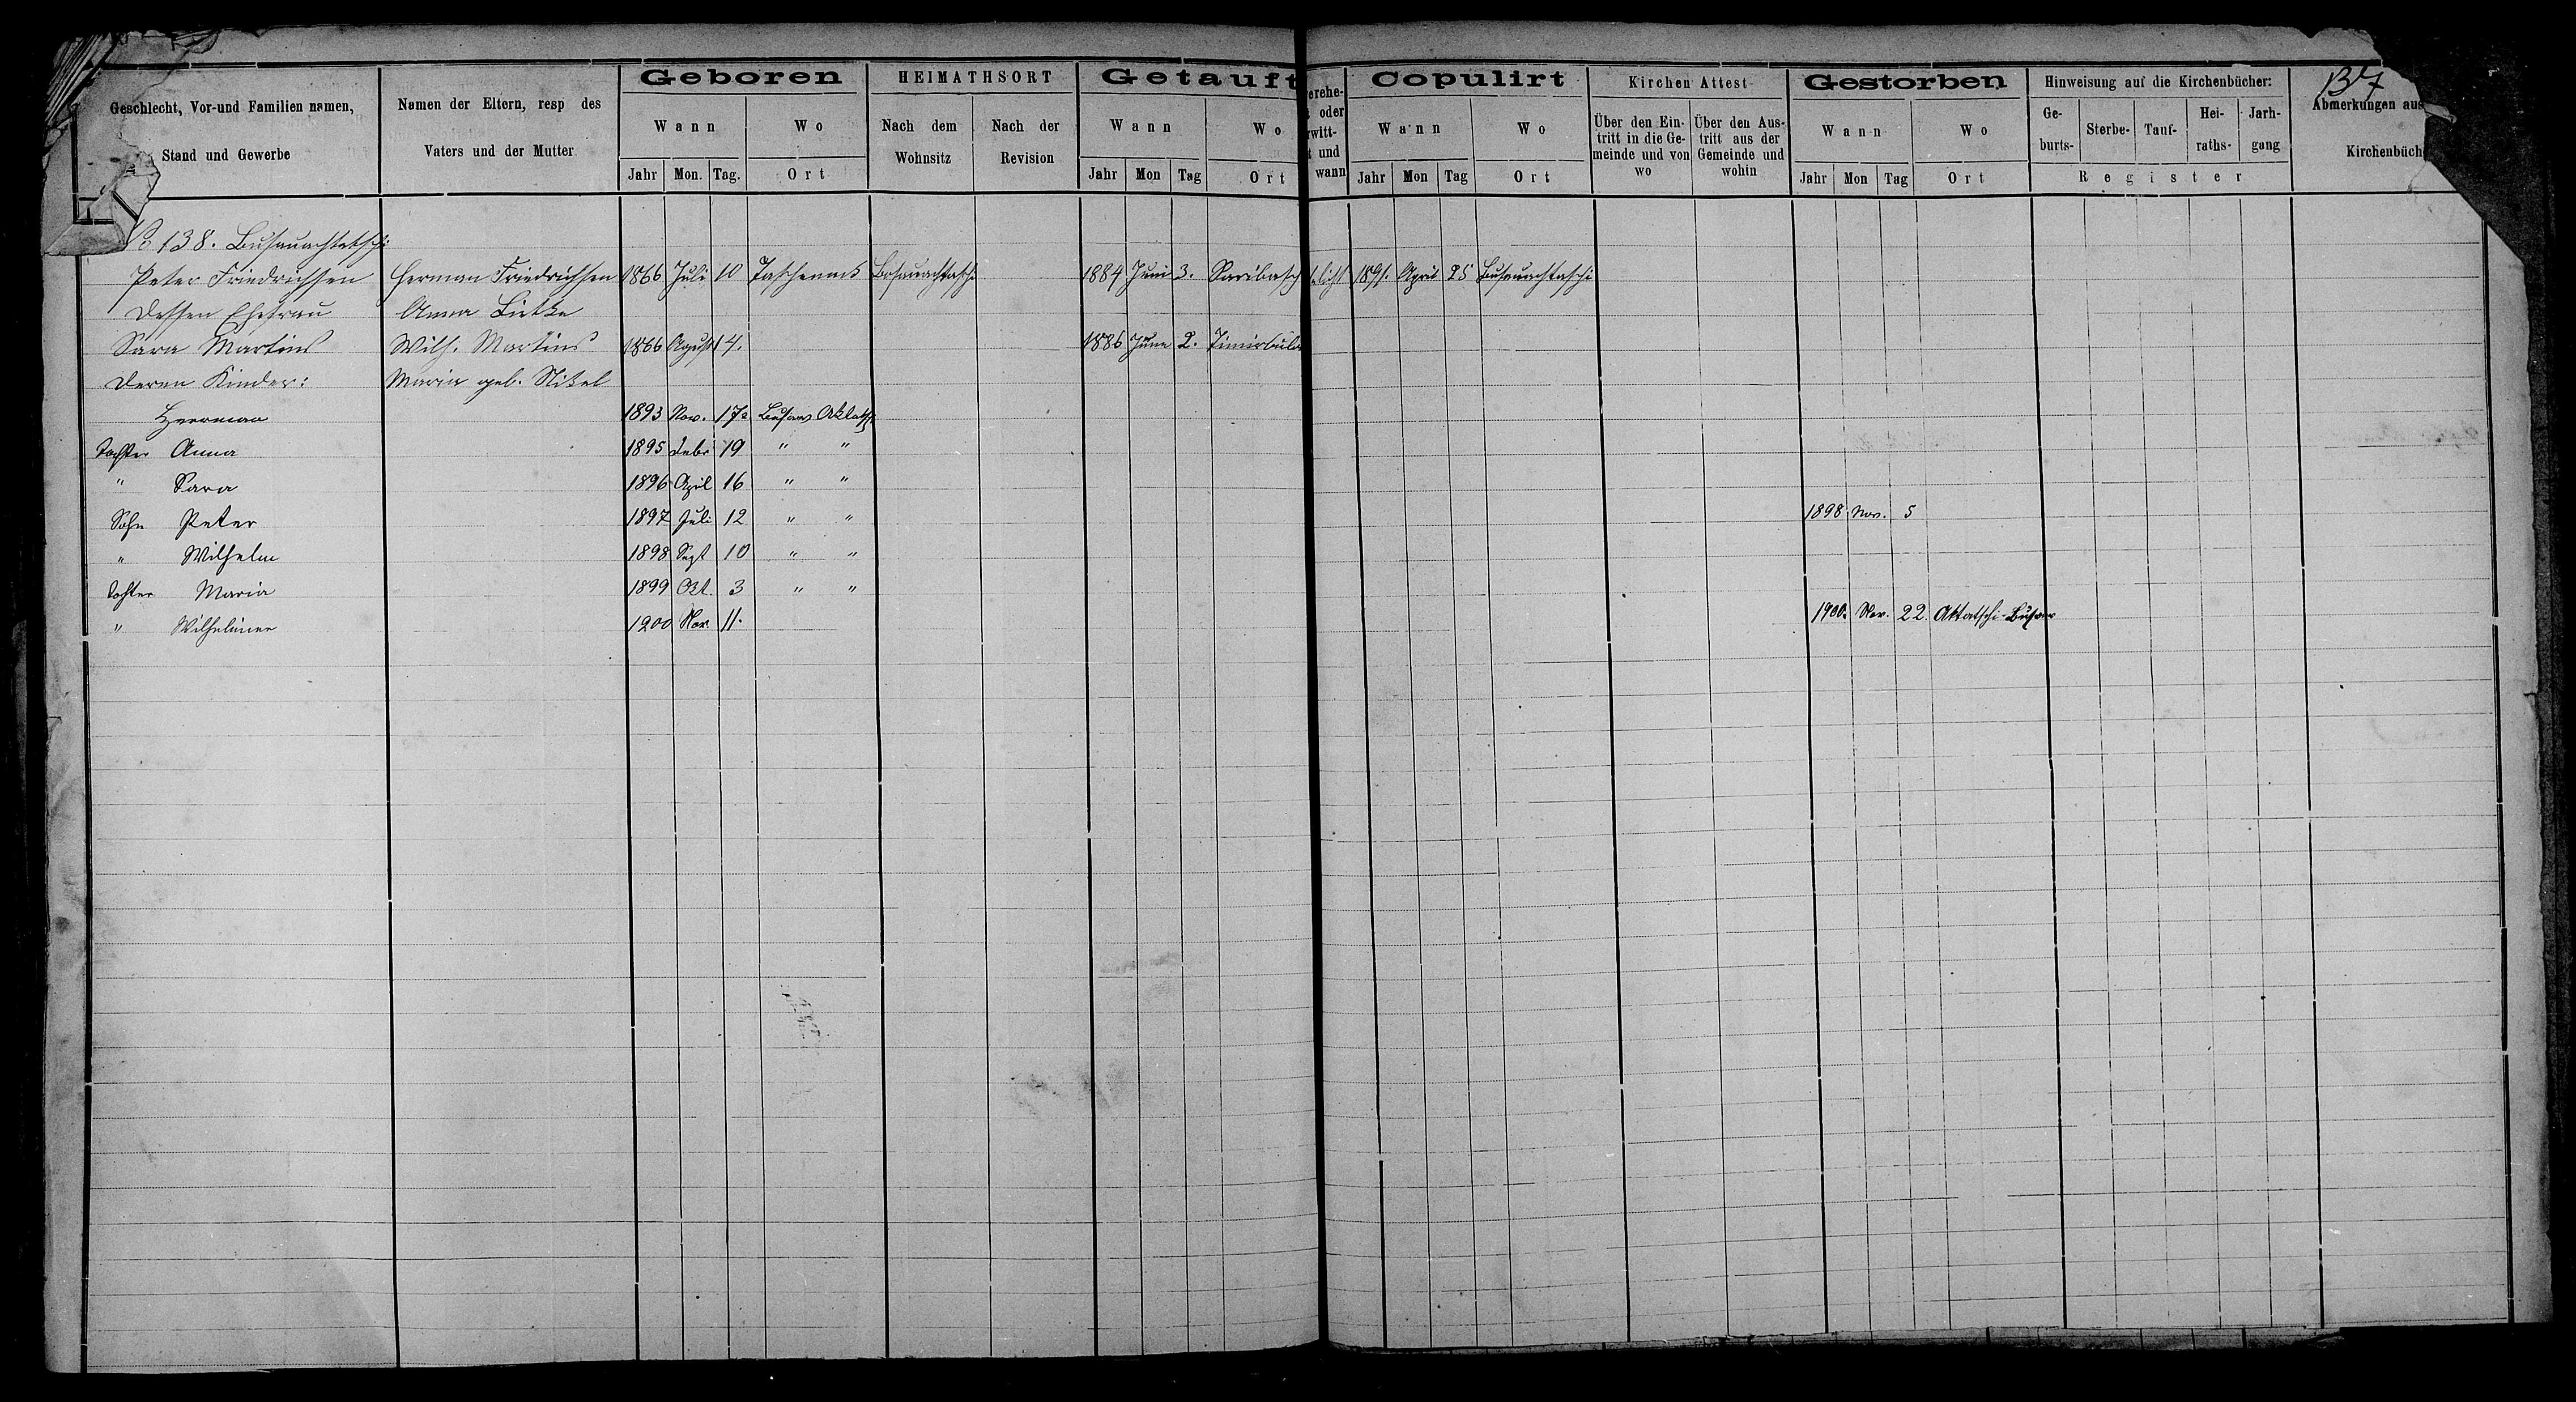 137
Geschlecht, Vor-und Familien namen,
Stand und Gewerbe
Namen der Eltern, resp des
Vaters und der Mutter
Geboren
Wann
Wo
Jahr Mon. Tag. Ort
HEIMATHSORT
Nach dem Wohnsitz
Nach der Revision
Getauft
Wann
Wo
Jahr Mon Tag Ort
wann
Copulirt
Wann
Wo
Jahr Mon Tag Ort
Kirchen Attest
Über den Eintritt in die Gemeinde und von wo
Über den Austritt aus der Gemeinde und wohin
Gestorben
Wann
Wo
Jahr Mon Tag Ort
Hinweisung auf die Kirchenbücher:
Geburts- Sterbe- Tauf- Heiraths- Jarhgang
Register
Abmerkungen aus
Kirchenbüch
№ 138. Busauachtatschi
Peter Friedrichsen Herman Friedrichsen 1866 Juli 10 Taschenak Busauachtatschi 1884 Juni 3. Karibasch 1891. April 25 Busauachtaschi
dessen Ehefrau Anna
Sara Martins Wilh. Martins 1866 August 14. 1886 June 2. Timirbulat
deren Kinder: Maria geb. Nikel
Herrman 1893 Nov. 17. Busaw Aktatschi
Tochter Anna 1895 Febr 19 " "
" Sara 1896 April 16 " "
Sohn Peter 1897 Juli 12 " " 1898 Nov. 5
" Wilhelm 1898 Sept 10 " "
Tochter Maria 1899 Okt. 3 " "
" Wilhelmine 1900 Nov 11. 1900. Nov. 22. Aktatschi-Busaw